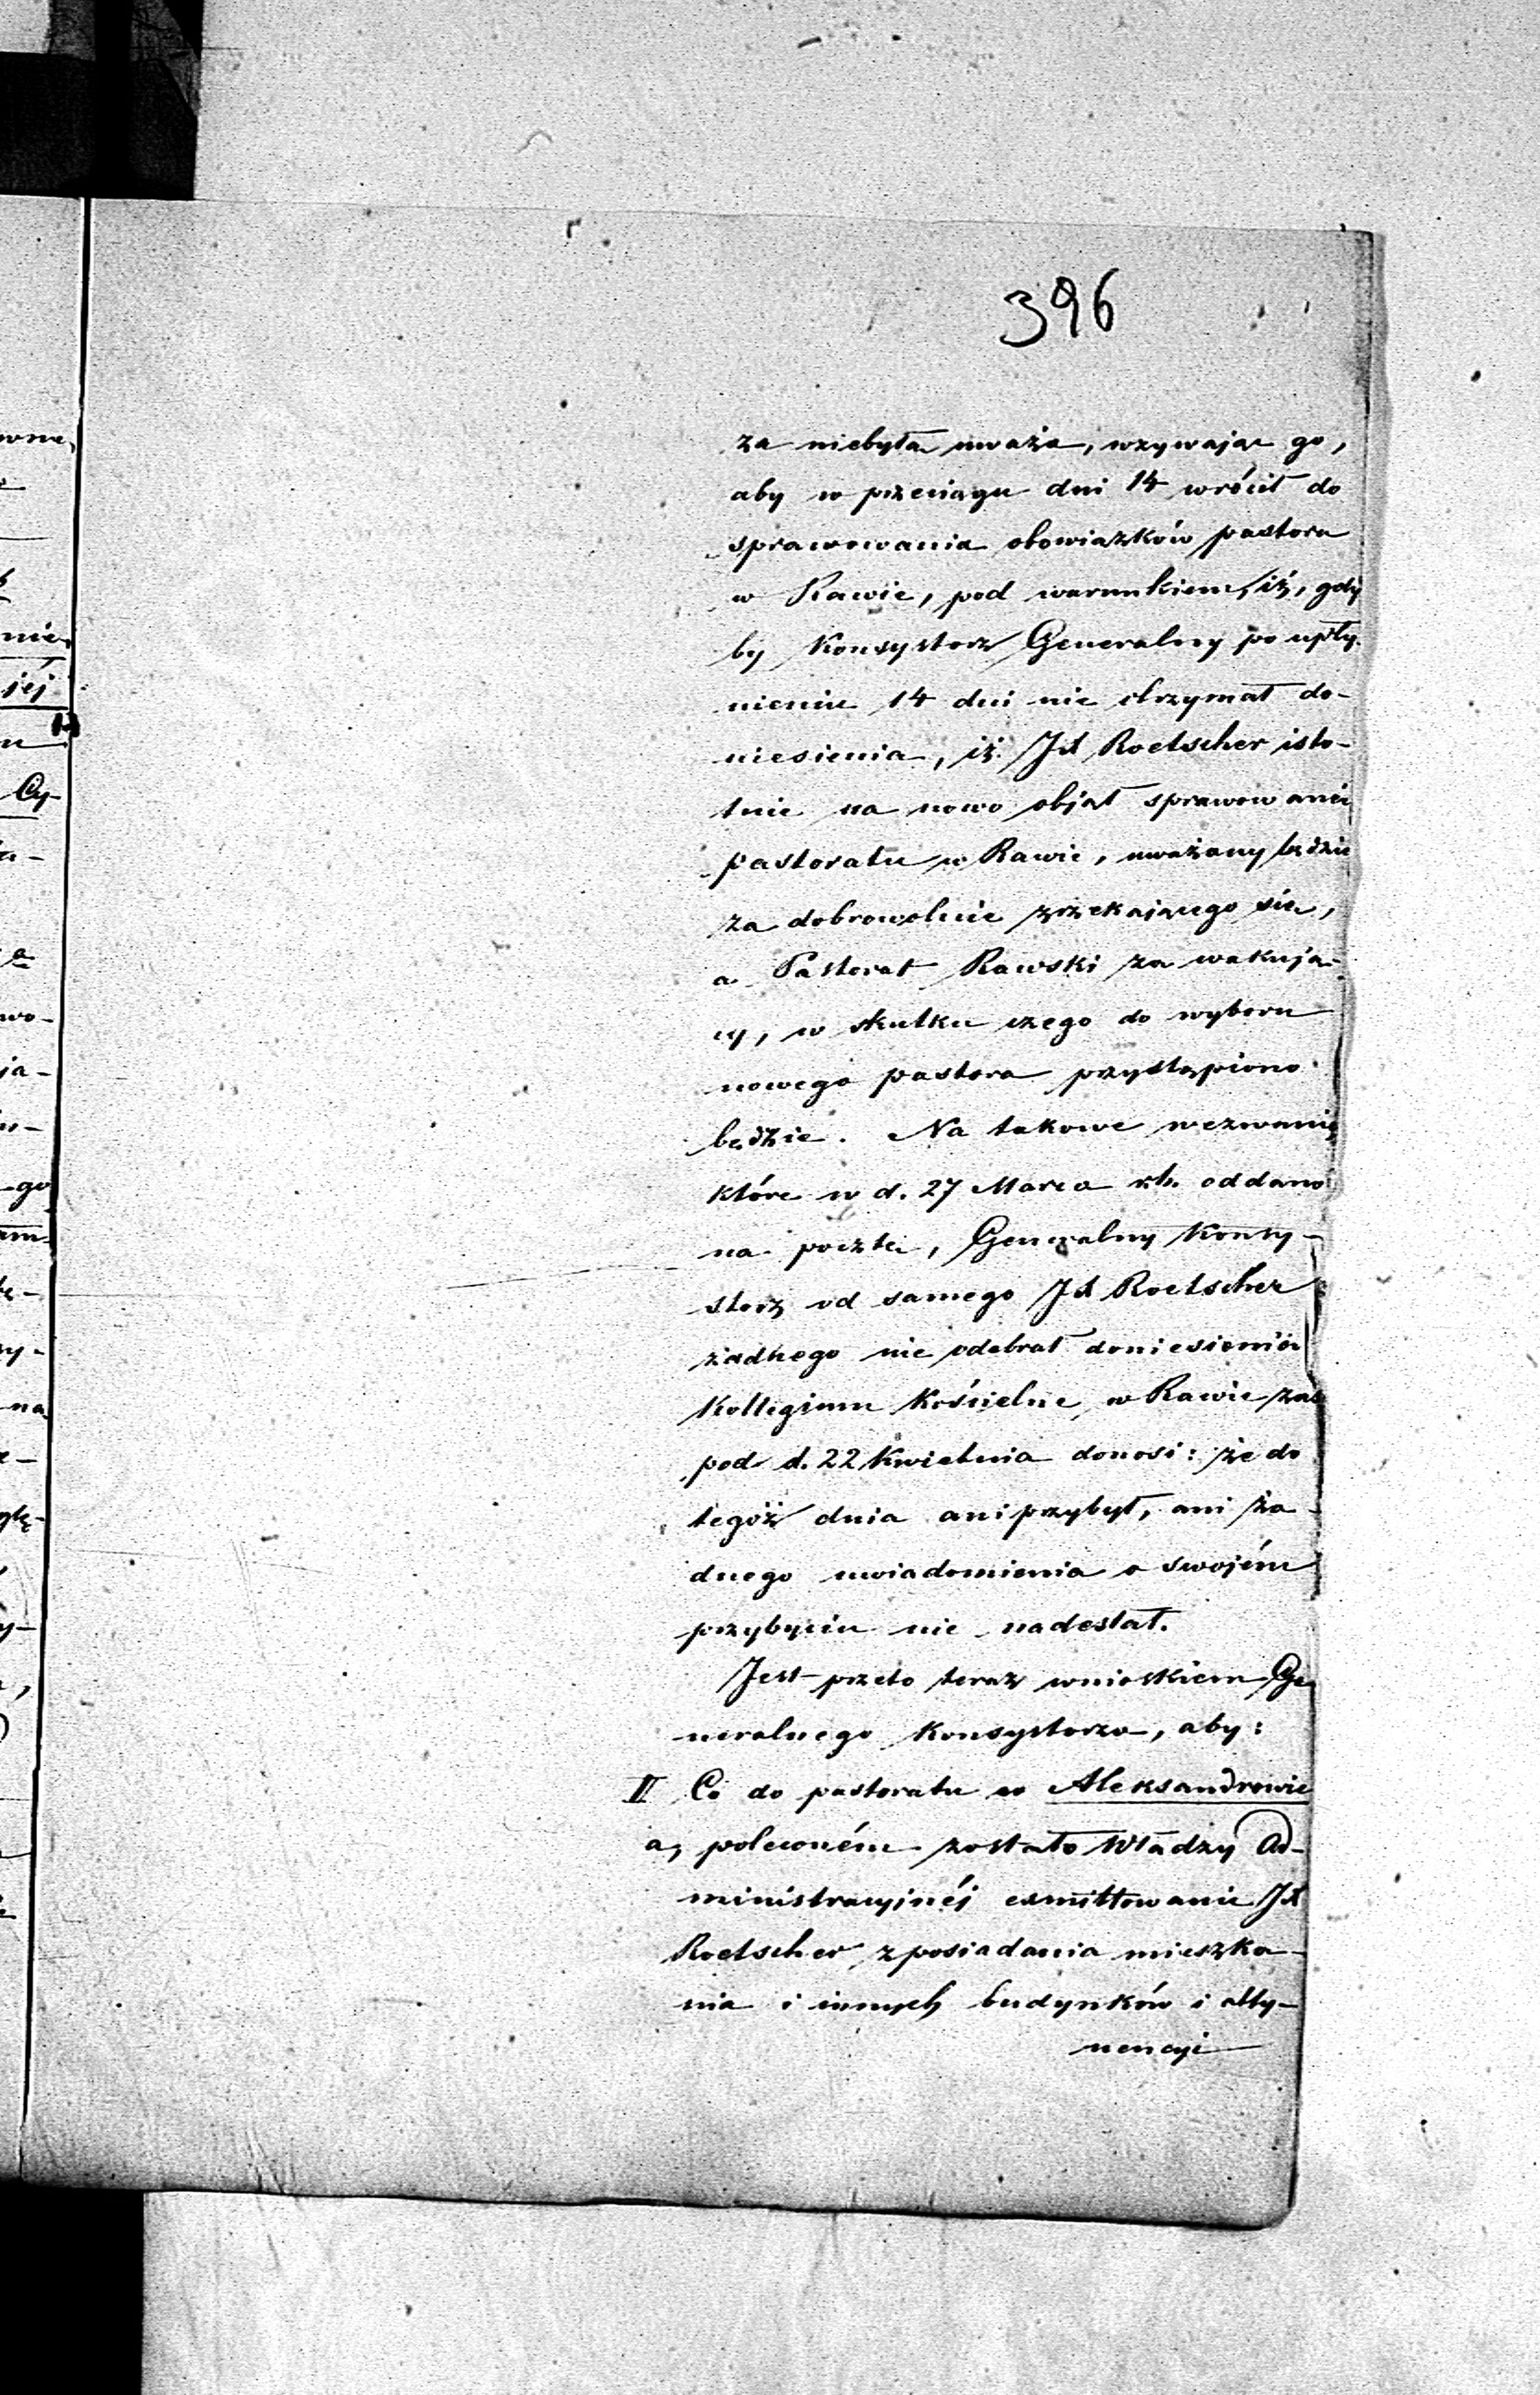 396
za niebyłą uważa, wzywając go,
aby w przeciągu dni 14 wrócił do
sprawowania obowiązków pastora
w Rawie, pod warunkiem, iż, gdy
by Konsystorz Generalny po upły
nieniu 14 dni nie otrzymał do-
niesienia, iż JX Roetscher isto-
tnie na nowo objął sprawowanie
pastoratu w Rawie, uważany będzie
za dobrowolnie zrzekającego się,
a Pastorat Rawski za wakują-
cy, w skutku czego do wyboru
nowego pastora przystąpiono
będzie. Na takowe wezwanie,
które w d. 27 Marca rb. oddano
na pocztę, Generalny Konsy-
storz od samego JX Roetscher
żadnego nie odebrał doniesienia
Kollegium Kościelne w Rawie zaś
pod d. 22 Kwietnia donosi: że do
tegóż dnia ani przybył, ani ża-
dnego uwiadomienia o swojém
przybyciu nie nadesłał.
Jest przeto teraz wnioskiem Ge
neralnego Konsystorza, aby:
II Co do pastoratu w Aleksandrowie
a, poleconém zostało Władzy Ad-
ministracyjnéj exmittowanie JX
Roetscher z posiadania mieszka-
nia i innych budynków i atty-
nencyi
wne,
nie,
jéj
Cy-
wo-
ja-
go
na